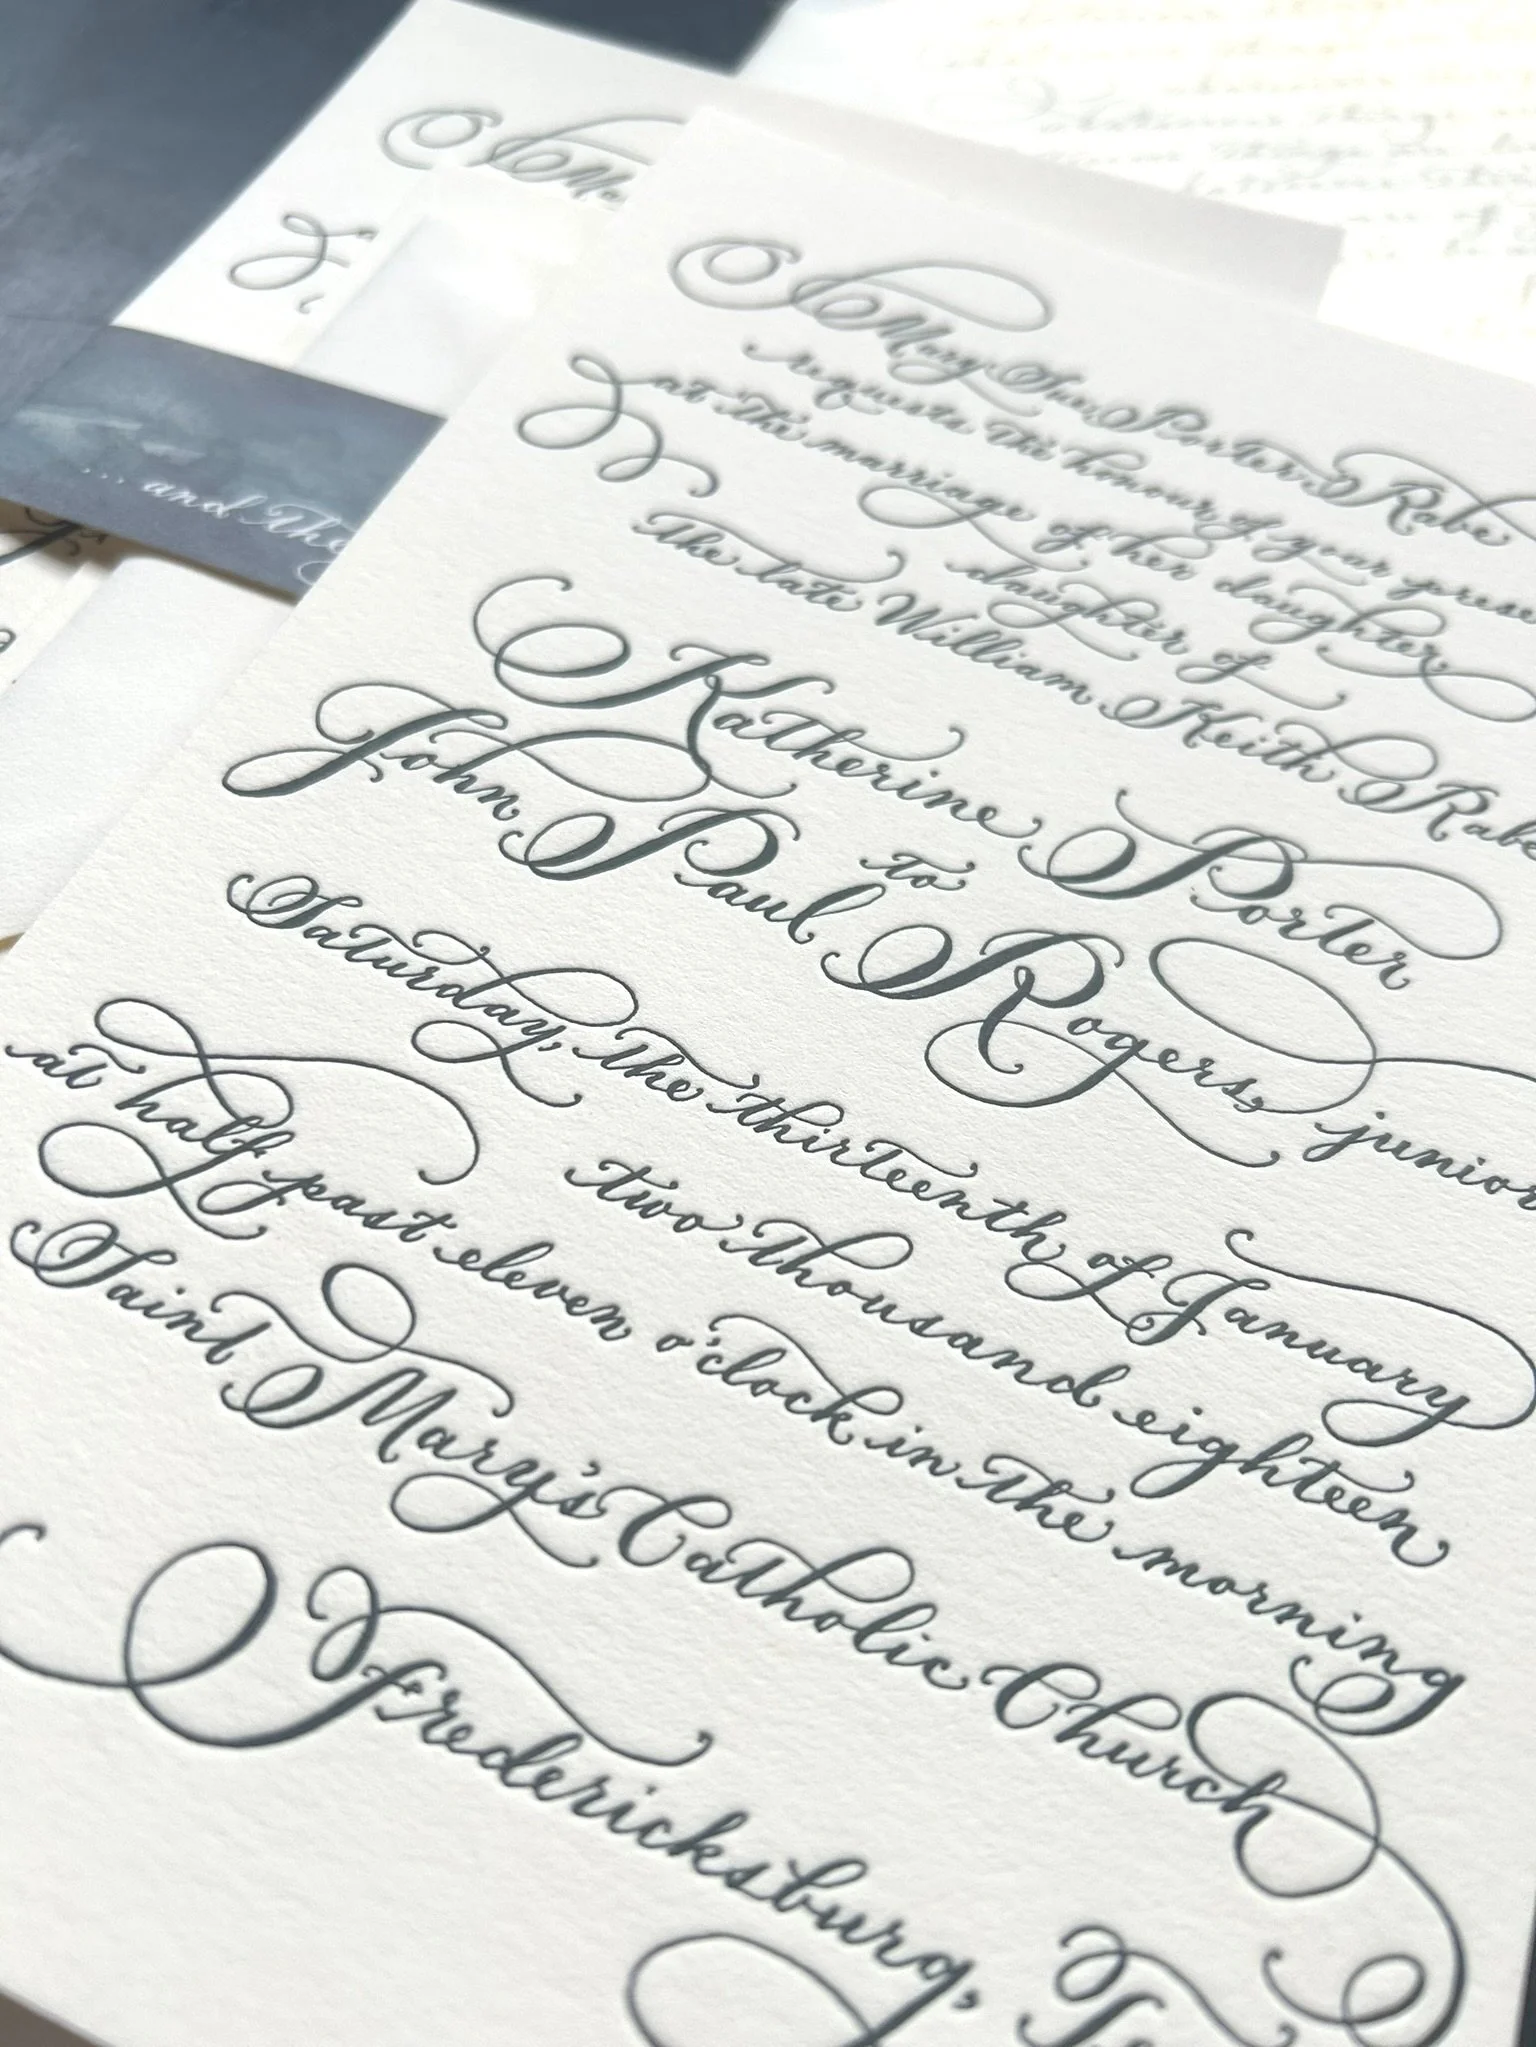 Mary Sue Porter Rabe
requests the honour of your prese
at the marriage of her daughter
daughter of
the late William Keith Rabe
Katherine Porter
to
John Paul Rogers, junior
Saturday, the thirteenth of January
two thousand eighteen
at half past eleven o'clock in the morning
Saint Mary's Catholic Church
Fredericksburg, Te
... and they